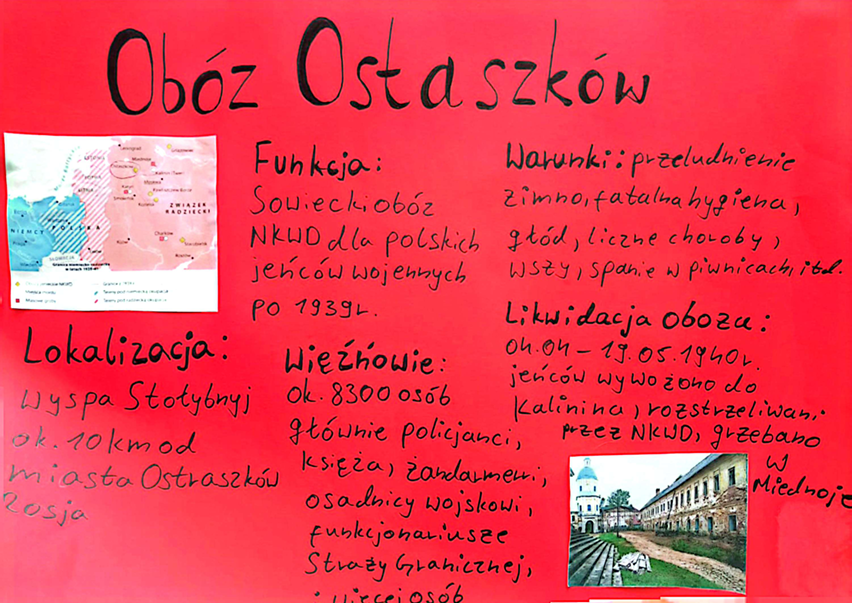 Obóz Ostaszków
ZWIĄZEK
RADZIECKI
NIEMCY
POLSKA
Funkcja:
Sowiecki obóz
NKWD dla polskich
jeńców wojennych
po 1939r.
Warunki: przeludnienie
zimno, fatalna hygiena,
głód, liczne choroby,
wszy, spanie w piwnicach, itd.
Lokalizacja:
wyspa Stołybnyj
ok. 10 km od
miasta Ostraszków
Rosja
Więźniowie:
ok. 8300 osób
głównie policjanci,
księża, żandarmerii,
osadnicy wojskowi,
funkcjonariusze
Straży Granicznej,
i więcej osób
Likwidacja obozu:
04.04 - 19.05.1940r.
jeńców wywożono do
Kalinina, rozstrzeliwani
przez NKWD, grzebano
w
Miednoje